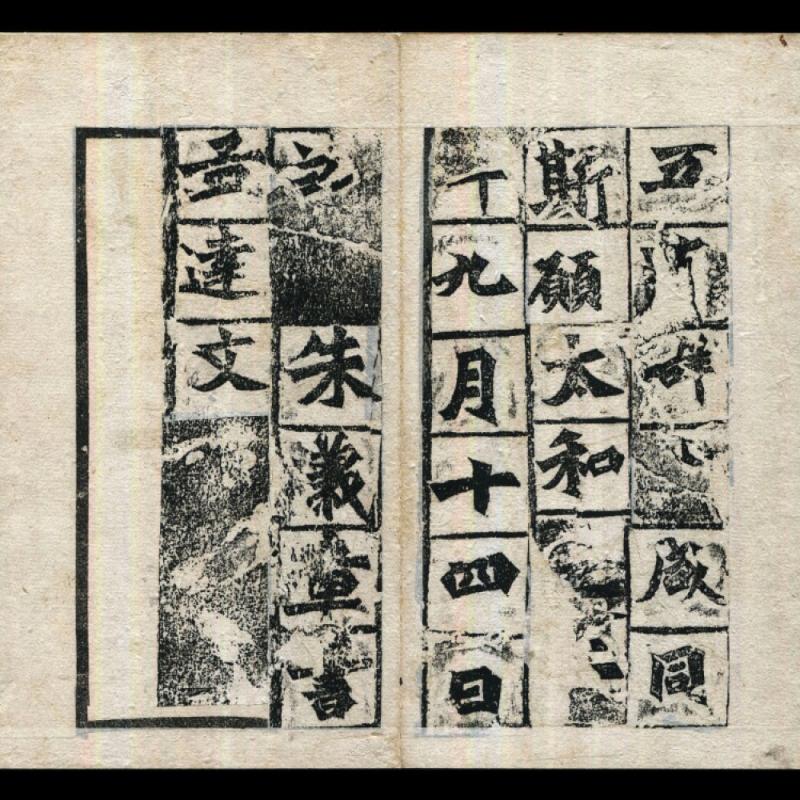 五群咸同
斯願太和二
九月十四日
朱義章書
孟達文